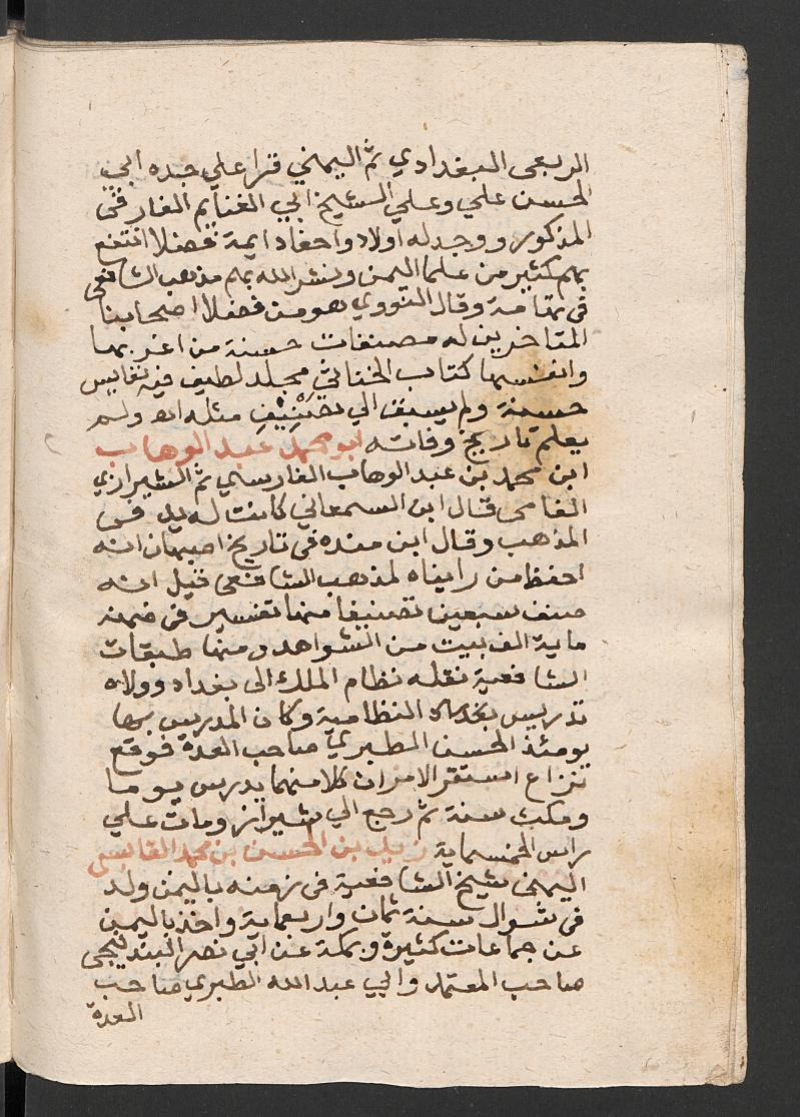 الربعى البغدادي ثم اليمني قرا علي جده ابي
الحسن علي وعلي الشيخ ابي الغنايم الفارقى
المذكور ووجد له اولاد واحفاد ايمة فضلا انتفع
بهم كثير من علما اليمن ونشر الله بهم مذهب الشافعى
فى تهامة وقال النووي هو من فضلا اصحابنا
المتاخرين له مصنفات حسنة من اغربها
وانفسها كتاب الخناثي مجلد لطيف فيه نفايس
حسنة ولم يسبق الي تصنيف مثله اه ولم
يعلم تاريخ وفاته ابو محمد عبد الوهاب
ابن محمد بن عبد الوهاب الفارسي ثم الشيرازي
الفامى قال ابن السمعاني كانت له يد فى
المذهب وقال ابن منده فى تاريخ اصبهان انه
احفظ من رايناه لمذهب الشافعى قيل انه
صنف سبعين تصنيفا منها تفسير فى ضمنه
ماية الف بيت من الشواهد ومنها طبقات
الشافعية نقله نظام الملك الى بغداد وولاه
تدريس النظامية وكان المدرس بها
يومئذ الحسن الطبري صاحب العدة فوقع
نزاع استقر الامر ان كلا منهما يدرس يوما
ومكث سنة ثم رجع الي شيراز ومات علي
راس الخمسماية زيد بن الحسن بن محمد الفايشى
اليمنى شيخ الشافعية فى زمنه باليمن ولد
فى شوال سنة ثمان واربعماية واخذ باليمن
عن جماعات كثيرة وبمكة عن ابي نصر البندنيجى
صاحب المعتمد وابي عبد الله الطبري صاحب
العدة